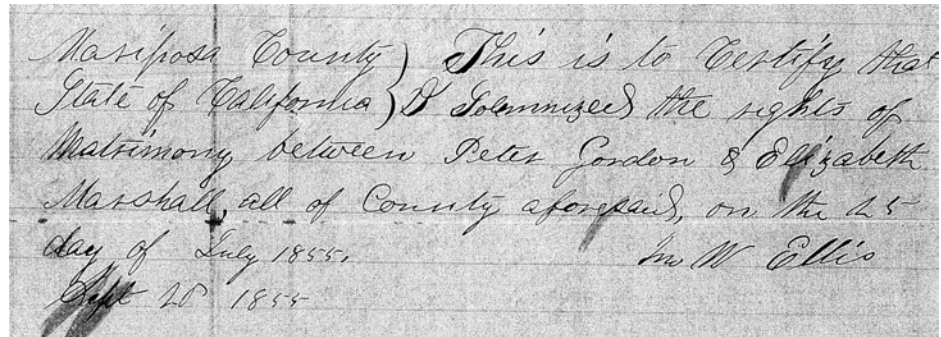 Mariposa County } This is to Certify that
State of California } I Solemnized the rights of
Matrimony between Peter Gordon & Elizabeth
Marshall, all of County aforesaid, on the 25
day of July 1855. W Ellis
Sept 1855